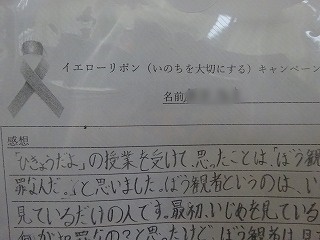 イエローリボン（いのちを大切にする）キャンペーン
名前
感想
「ひきょうだよ」の授業を受けて、思ったことは、「ぼう観
罪なんだ。」と思いました。ぼう観者というのは、い
見ているだけの人です。最初、いじめを見ている
罪なの？と思ったけど、ぼう観者は見